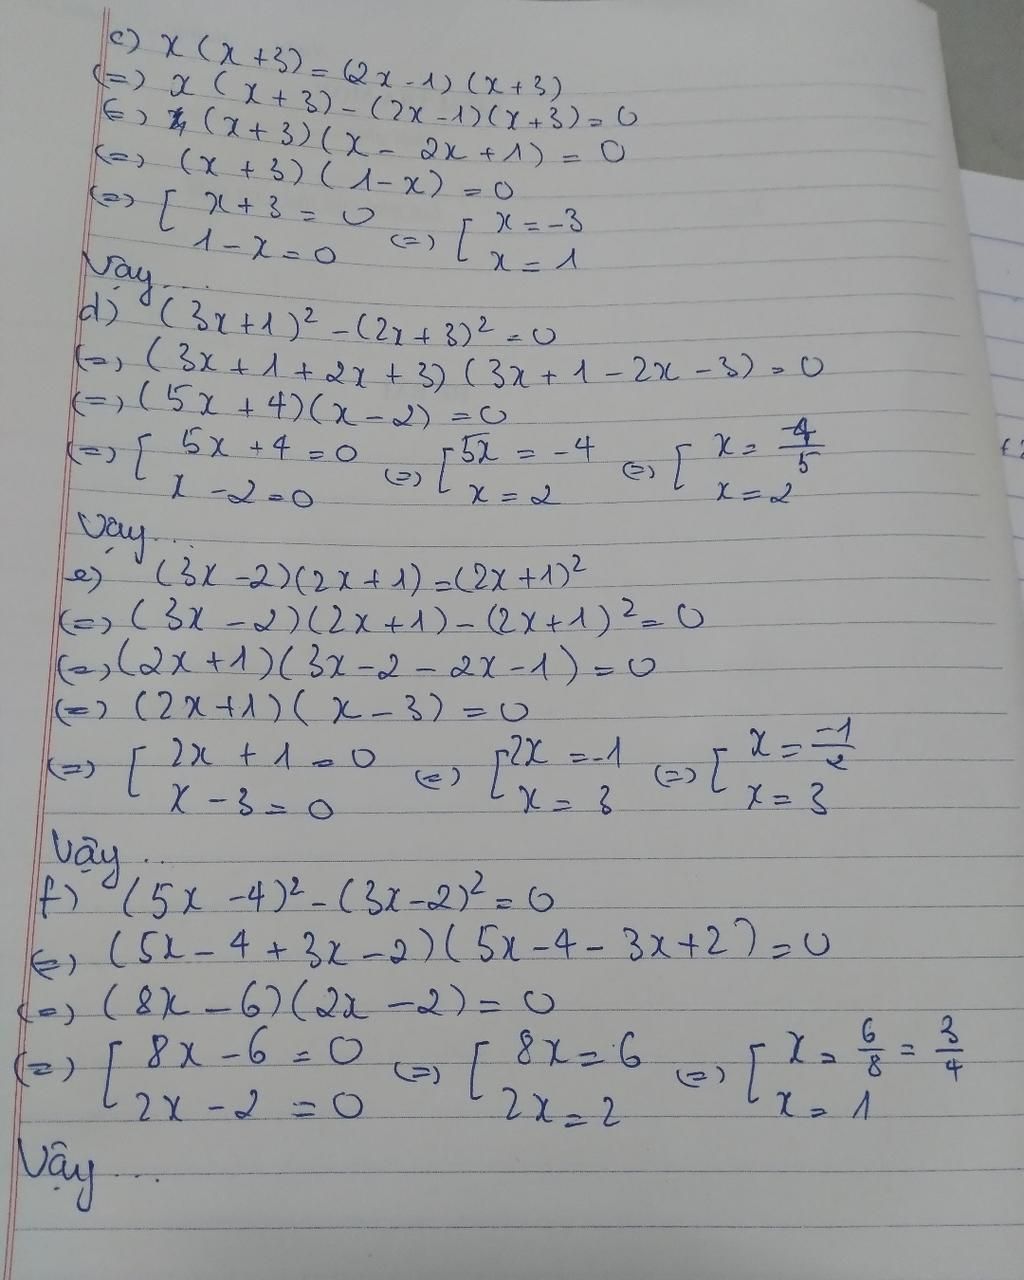 c) x(x+3)=(2x-1)(x+3)
(=) x(x+3)-(2x-1)(x+3)=0
(=) (x+3)(x-2x+1)=0
(=) (x+3)(1-x)=0
(=) [ x+3=0 (=) [ x=-3
1-x=0 x=1
Vậy...
d) (3x+1)²-(2x+3)²=0
(=) (3x+1+2x+3)(3x+1-2x-3)=0
(=) (5x+4)(x-2)=0
(=) [ 5x+4=0 (=) [ 5x=-4 (=) [ x=-4/5
x-2=0 x=2 x=2
Vậy...
e) (3x-2)(2x+1)=(2x+1)²
(=) (3x-2)(2x+1)-(2x+1)²=0
(=) (2x+1)(3x-2-2x-1)=0
(=) (2x+1)(x-3)=0
(=) [ 2x+1=0 (=) [ 2x=-1 (=) [ x=-1/2
x-3=0 x=3 x=3
Vậy...
f) (5x-4)²-(3x-2)²=0
(=) (5x-4+3x-2)(5x-4-3x+2)=0
(=) (8x-6)(2x-2)=0
(=) [ 8x-6=0 (=) [ 8x=6 (=) [ x=6/8=3/4
2x-2=0 2x=2 x=1
Vậy...